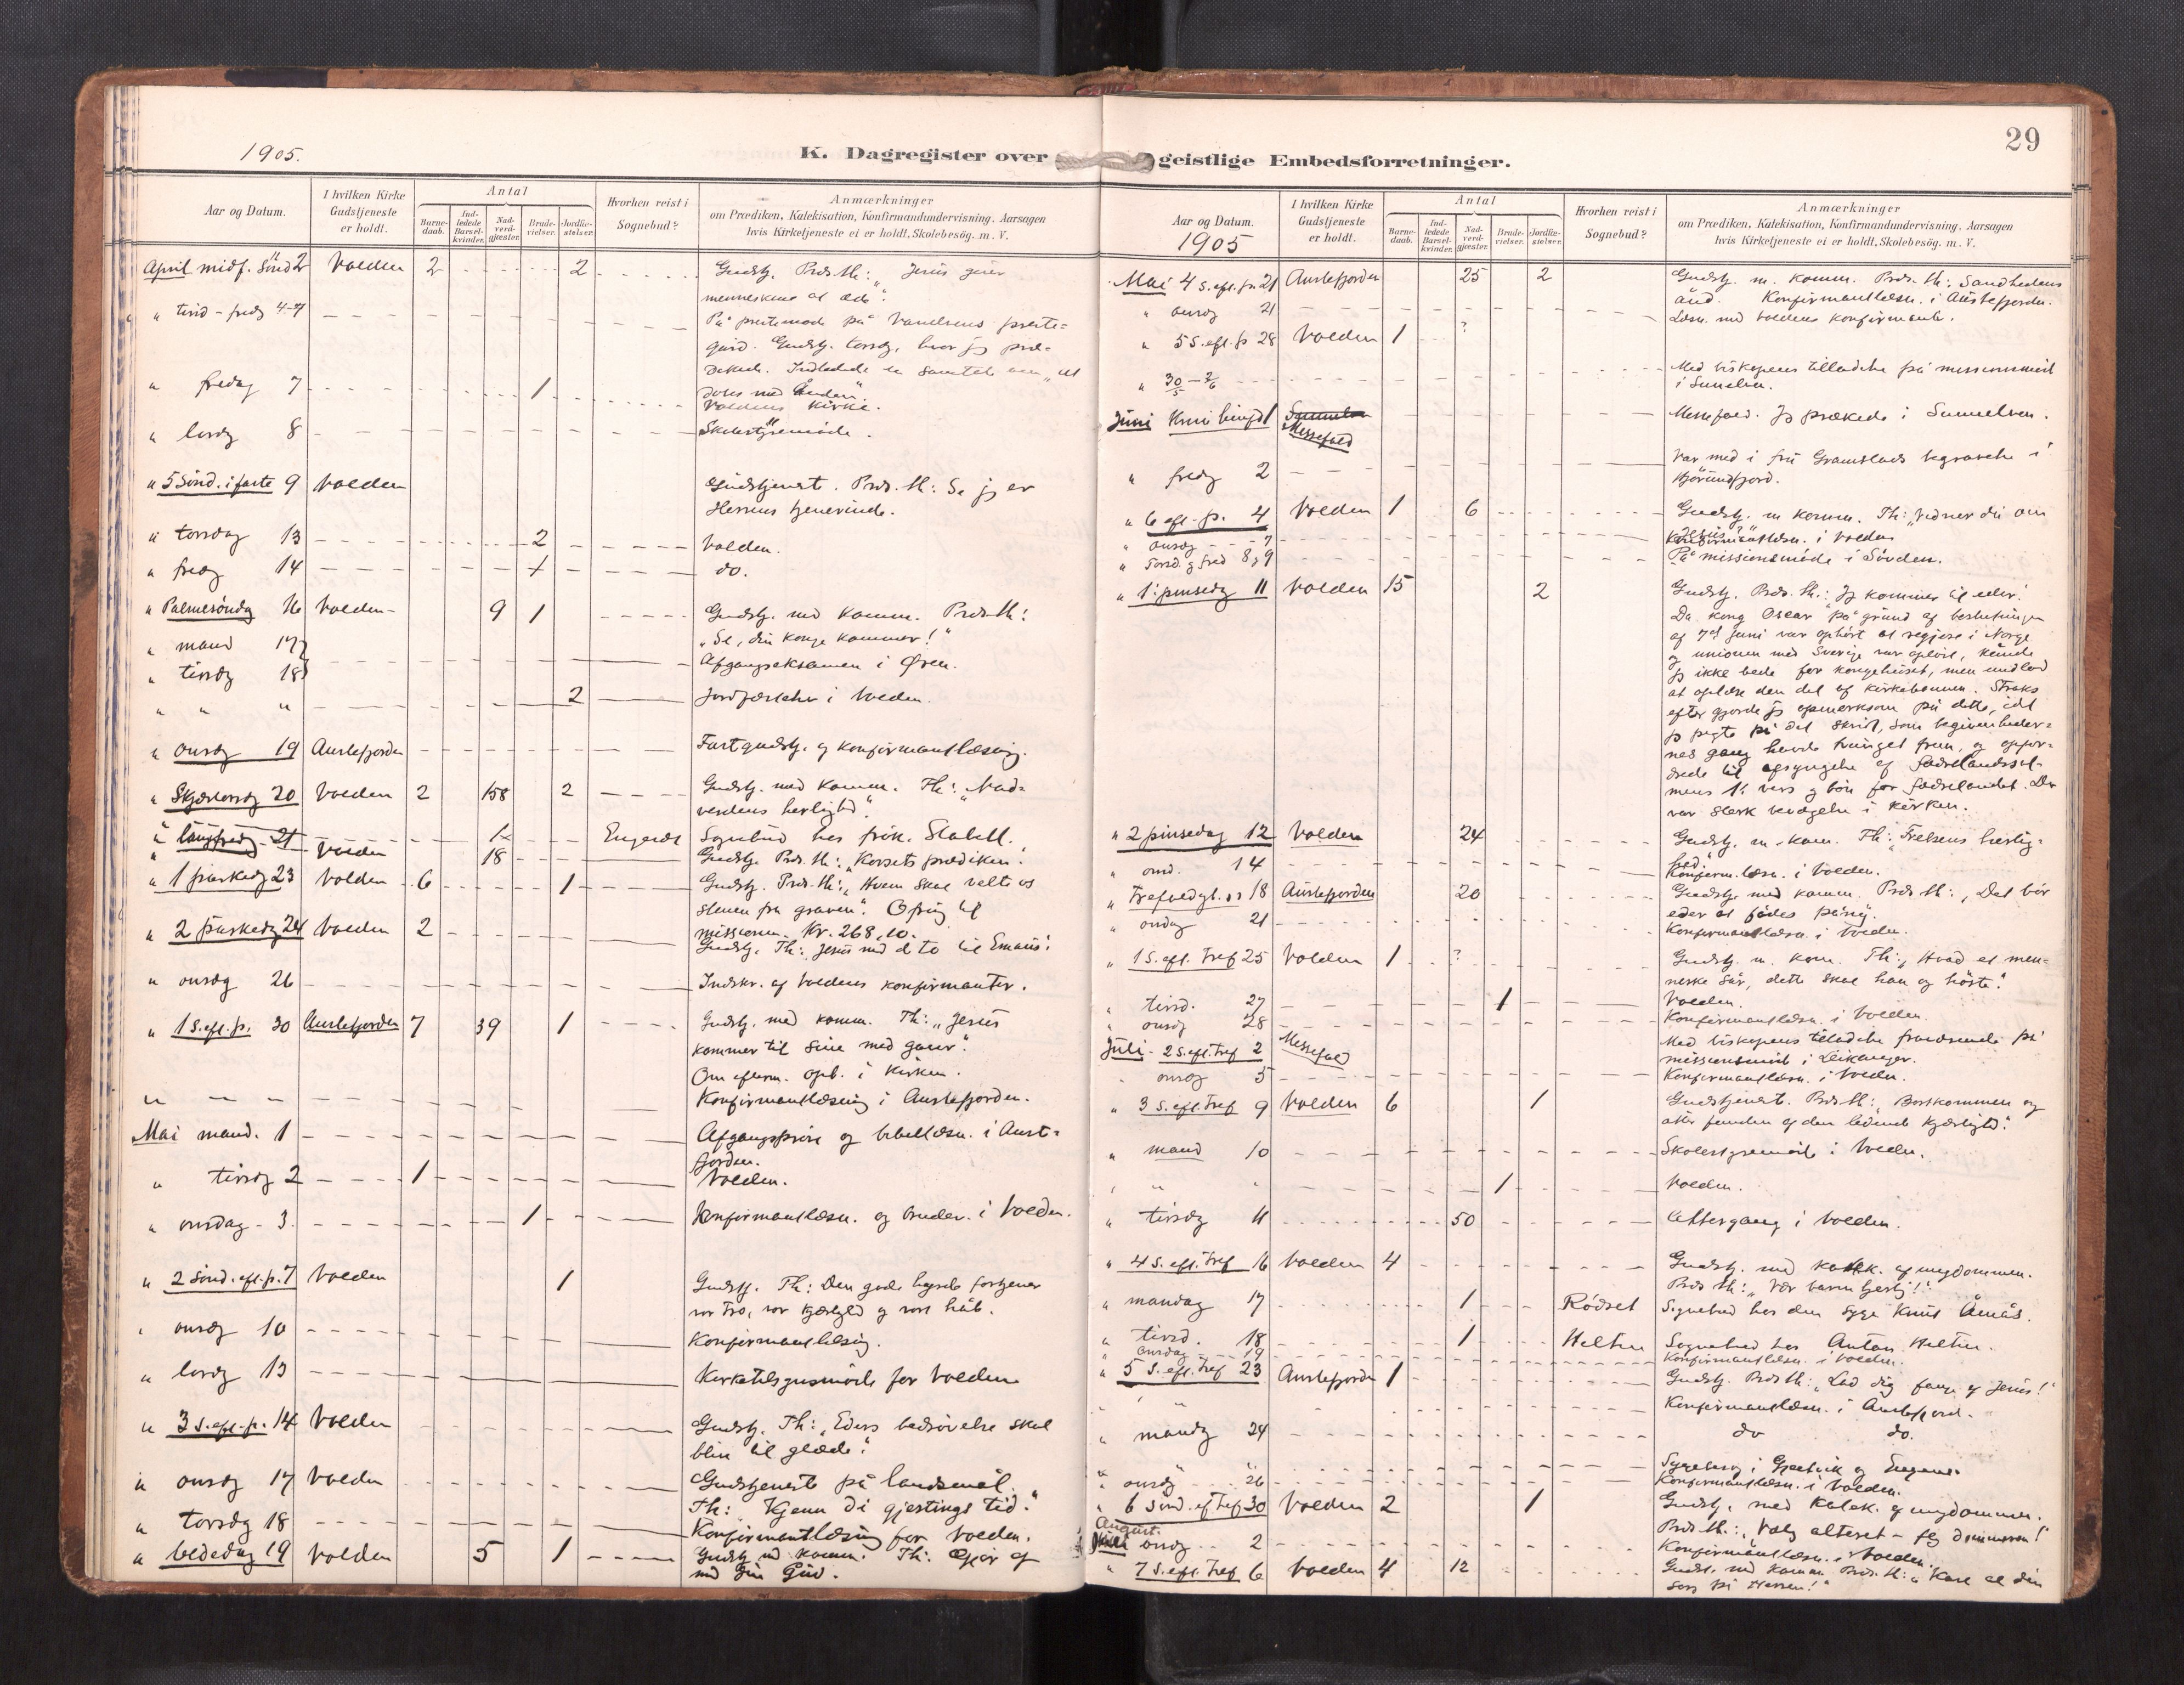 1905.
K. Dagregister over
Aar og Datum.
I hvilken Kirke Gudstjeneste er holdt.
Antal
Barne-daab.
Ind-ledede Barsel-kvinder.
Nad-verd-gjester.
Brude-vielser.
Jordfæ-stelser.
Hvorhen reist i Sognebud?
Anmærkninger
om Prædiken, Katekisation, Konfirmandundervisning, Aarsagen
hvis Kirketjeneste ei er holdt, Skolebesøg. m. V.
April midf. Sönd 2 Volden 2 2 Gudstj. Præd. th: "Jesus giver
menneskene at æde".
" tirsd - fredg 4-7 På prestemöde på Vanelvens preste-
gård. Gudstj. torsdg, hvor jeg præ-
dikede. Indledede en samtale om "at
döbes med Ånden".
" fredag 7 1 Voldens kirke.
" lordg 8 Skolestyremöde.
" 5 Sönd. i faste 9 Volden Gudstjenest. Præd. th: Se jeg er
Herrens tjenerinde.
" torsdag 13 2 Volden.
" fredg 14 1 do.
" Palmesöndg 16 Volden 9 1 Gudstj. med komm. Præd. th:
"Se, din konge kommer!"
" mand 17
" tirsdg 18 Afgangseksamen i Øren.
" " " 2 Jordfæstelser i Volden.
" onsdg 19 Austefjorden Fastegudstj. og konfirmantlæsning.
" Skjærtorsdg 20 Volden 2 158 2 Gudstj. med komm. Th: "Nad-
verdens herlighed".
" langfredg 21 1 Engeset Sognebud hos frök. Stabell.
" Volden 18 Gudstj. Præd. th: "Korsets prædiken".
" 1 påskedg 23 Volden 6 1 Gudstj. Præd. th: "Hvem skal velte os
stenen fra graven". Ofring til
missionen. Kr. 268,10.
" 2 påskedg 24 Volden 2 Gudstj. Th: Jesus med de to til Emaus.
" onsdg 26 Indskr. af Voldens konfirmanter.
" 1 S. eft. p. 30 Austefjorden 7 39 1 Gudstj. med komm. Th: "Jesus
kommer til sine med gaver".
Om efterm. opb. i kirken.
" — — Konfirmantlæsning i Austefjorden.
Mai mand. 1 Afgangspröve og bibellæsn. i Aust-
fjorden.
" tirsdg 2 1 Volden.
" onsdag 3 1 Konfirmantlæsn. og brudev. i Volden.
" 2 Sönd. eft. p. 7 Volden 1 Gudstj. Th: Den gode hyrde fortjener
vor tro, vor kjærlighed og vort håb.
" onsdg 10 Konfirmantlæsning.
" lordg 13 Kirketilsynsmöde for Volden
" 3 S. eft. p. 14 Volden Gudstj. Th: "Eders bedrövelse skal
blive til glæde".
" onsdg 17 Volden Gudstjeneste på landsmål.
Th: "Kjenn di gjestings tid."
" torsdg 18 Konfirmantlæsning for Volden.
" bededag 19 Volden 5 1 Gudstj. m komm. Th:
med Gud.
29
geistlige Embedsforretninger.
Aar og Datum.
1905
I hvilken Kirke Gudstjeneste er holdt.
Antal
Barne-daab.
Ind-ledede Barsel-kvinder.
Nad-verd-gjester.
Brude-vielser.
Jordfæ-stelser.
Hvorhen reist i Sognebud?
Anmærkninger
om Prædiken, Katekisation, Konfirmandundervisning, Aarsagen
hvis Kirketjeneste ei er holdt, Skolebesøg. m. V.
Mai 4 S. eft. p. 21 Austefjorden 25 2 Gudstj. m. komm. Præd. th: Sandhedens
ånd. Konfirmantlæsn. i Austefjorden.
" onsdg 21 Læsn. med Voldens konfirmanter.
" 5 S. eft. p 28 Volden 1 ?
" 30/5 - 2/6 Med biskopens tilladelse på missionsmöde
i Sunelven.
Juni Kristi himfd 1 Messefald Messefald. Jeg prækede i Sunelven.
" fredg 2 Var med i fru Gramstads begravelse i
Hjörundfjord.
" 6 eft. p. 4 Volden 1 6 Gudstj. m komm. Th: "Vidner du om
Jesus?"
" onsdg 7 Konfirmantlæsn. i Volden
" Torsd. og fred 8 og 9 På missionsmöde i Sövden.
" 1. pinsedg 11 Volden 15 2 Gudstj. Præd. th.: Jeg kommer til eder.
Da kong Oscar på grund af beslutningen
af 7de juni var ophört at regjere i Norge
og unionen med Sverige var oplöst, kunde
jeg ikke bede for kongehuset, men undlod
at oplæse den del af kirkebönnen. Straks
efter gjorde jeg opmerksom på dette, idet
jeg pegte på det skrid, som begivenheder-
nes gang havde tvunget frem, og opfor-
drede til afsyngelse af fædrelandssal-
mens 1. vers og bön for fædrelandet. Der
var sterk bevægelse i kirken.
" 2 pinsedag 12 Volden 24 Gudstj. m. kom. Th: "Frelsens herlig-
hed."
" onsd. 14 Konfirm.læsn. i Volden.
" Trefoldgh. s. 18 Austefjorden 20 Gudstj. med komm. Præd. th: "Det bör
eder at födes påny.
" onsdg 21 Konfirmantlæsn. i Volden.
" 1 S. eft. Tref 25 Volden 1 ? Gudstj. m. kom. Th: "Hvad et men-
neske sår, dette skal han og höste."
" tirsd. 27 1 Volden.
" onsdg 28 Konfirmantlæsn. i Volden.
Juli - 2 S. eft. Tref 2 Messefald Med biskopens tilladelse fraværende på
missionsmöde i Leikanger.
" onsdg 5 Konfirmantlæsn. i Volden.
" 3 S. eft. Tref 9 Volden 6 1 Gudstjenest. Præd. th: "Bortkommen og
atter funden af den ledende kjærlighed".
" mand 10 Skolestyremöde i Volden.
" " " 1 Volden.
" tirsdg 11 50 Altergang i Volden.
" 4 S. eft. Tref 16 Volden 4 Gudstj. med katek. af ungdommen.
Præd th: "Vær barmhjertig!"
" mandag 17 1 Rödset Sognebud hos den syge Knut Åmås.
" tirsd. 18 1 Heltne Sognebud hos Anton Heltne.
" onsdag 19 Konfirmantlæsn. i Volden.
" 5 S. eft. Tref 23 Austefjorden 1 Gudstj. Præd th: "Lad dig fange af Jesus!"
" " Konfirmantlæsn. i Austefjord.
" mandg 24 do do.
" " " Sygebesög i Gjertvik og
" onsdg 26 Konfirmantlæsn. i Volden.
" 6 Sönd. ef Tref 30 Volden 2 1 Gudstj. med katek. af ungdommen.
Præd. th: "Vælg alteret - fly dommeren!"
August. onsdg 2 Konfirmantlæsn. i Volden.
" 7 S. eft. Tref 6 Volden 4 12 Gudst. med komm. Præd. th: "Kast al din
sorg på Herren!"